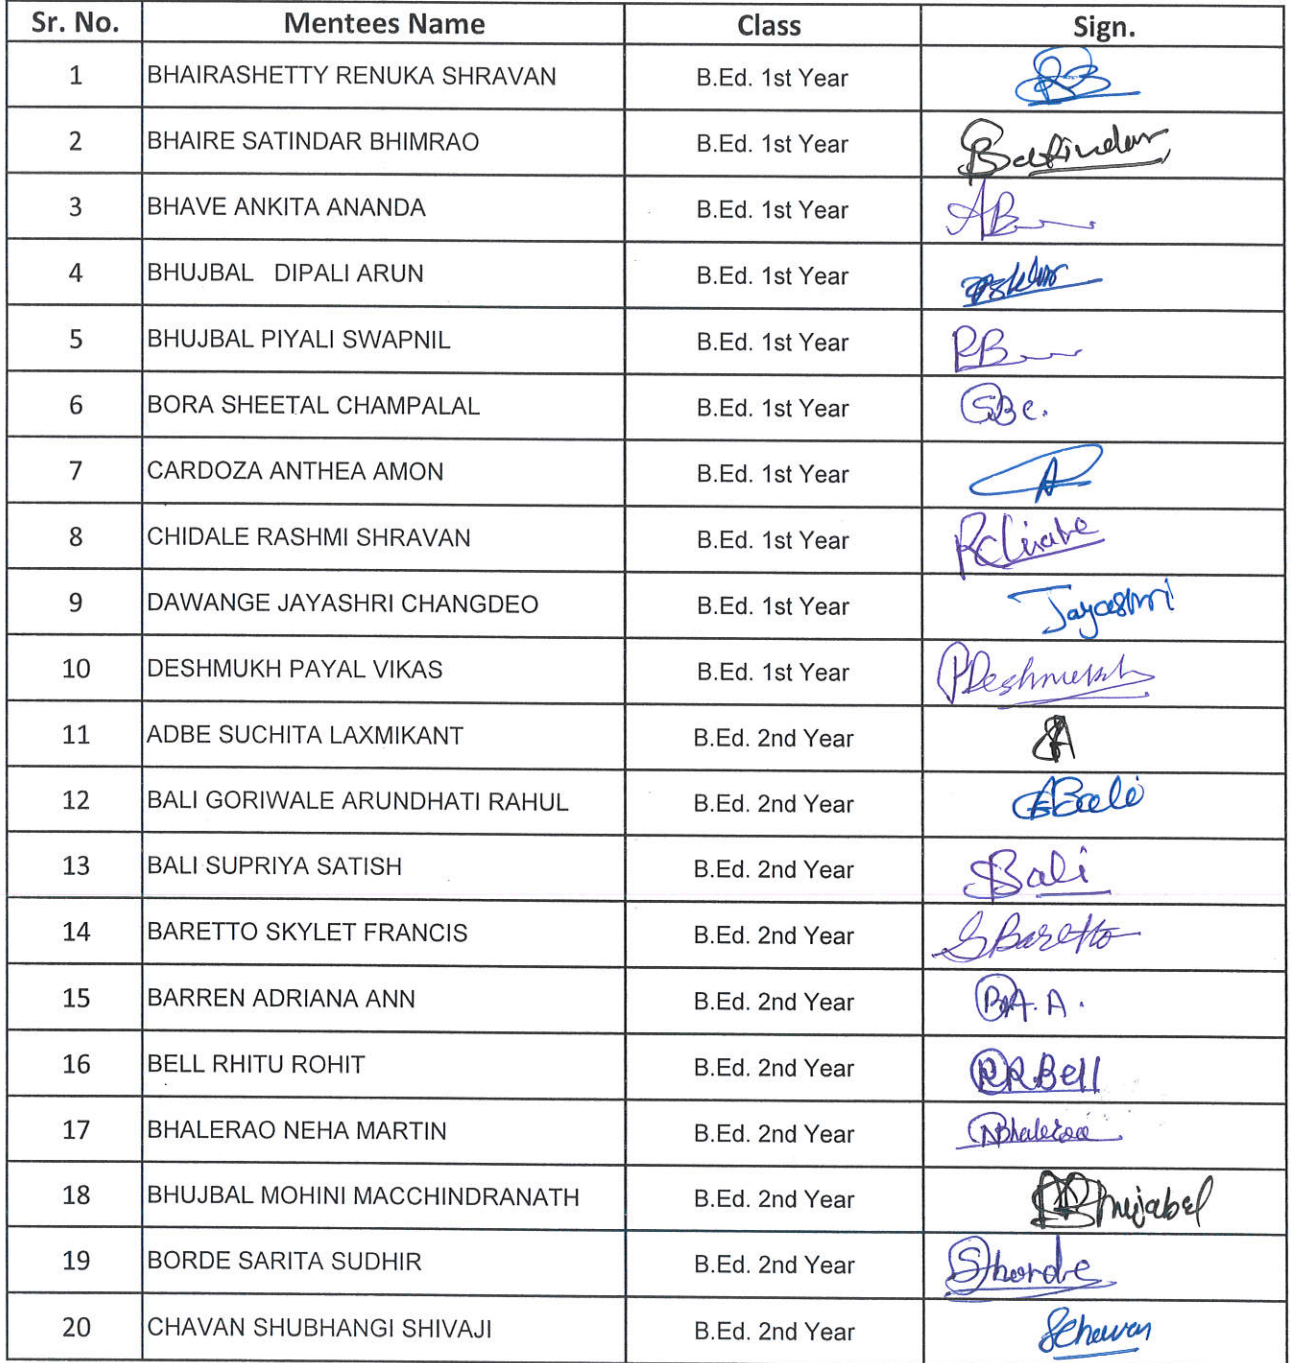 Sr. No. Mentees Name Class Sign.
1 BHAIRASHETTY RENUKA SHRAVAN B.Ed. 1st Year
2 BHAIRE SATINDAR BHIMRAO B.Ed. 1st Year Satindar
3 BHAVE ANKITA ANANDA B.Ed. 1st Year AB
4 BHUJBAL DIPALI ARUN B.Ed. 1st Year
5 BHUJBAL PIYALI SWAPNIL B.Ed. 1st Year PB
6 BORA SHEETAL CHAMPALAL B.Ed. 1st Year SBC.
7 CARDOZA ANTHEA AMON B.Ed. 1st Year A
8 CHIDALE RASHMI SHRAVAN B.Ed. 1st Year
9 DAWANGE JAYASHRI CHANGDEO B.Ed. 1st Year Jayashri
10 DESHMUKH PAYAL VIKAS B.Ed. 1st Year PDeshmukh
11 ADBE SUCHITA LAXMIKANT B.Ed. 2nd Year SA
12 BALI GORIWALE ARUNDHATI RAHUL B.Ed. 2nd Year ABali
13 BALI SUPRIYA SATISH B.Ed. 2nd Year SBali
14 BARETTO SKYLET FRANCIS B.Ed. 2nd Year SBaretto
15 BARREN ADRIANA ANN B.Ed. 2nd Year B.A.A.
16 BELL RHITU ROHIT B.Ed. 2nd Year RRBell
17 BHALERAO NEHA MARTIN B.Ed. 2nd Year NBhalerao
18 BHUJBAL MOHINI MACCHINDRANATH B.Ed. 2nd Year
19 BORDE SARITA SUDHIR B.Ed. 2nd Year
20 CHAVAN SHUBHANGI SHIVAJI B.Ed. 2nd Year SChavan